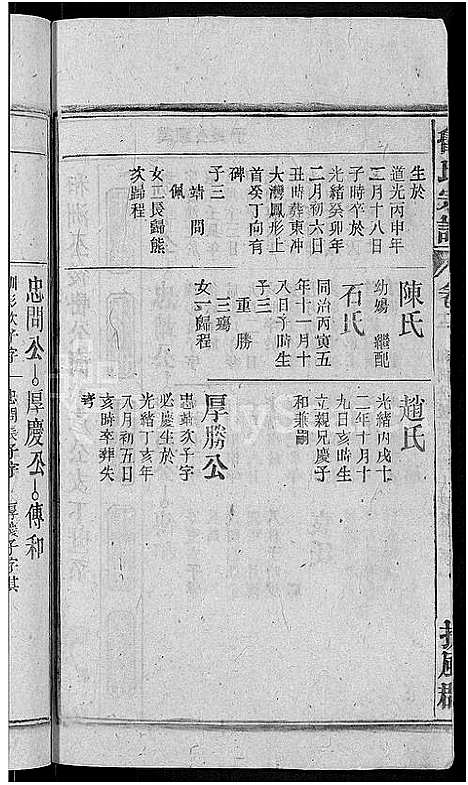 氏宗譜
扶風郡
生於
道光丙申年
二月十八日
子時卒於
光緒癸卯年
二月初六日
丑時葬東冲
大灣鳳形上
首癸丁向有
碑
子三
靖 問
佩
女二長歸熊
次歸程
陳氏
幼殤 繼配
石氏
同治丙寅五
年十一月十
八日子時生
子三
重 勝
三殤
女一歸程
趙氏
光緒丙戌十
二年十月十
九日亥時生
立親兄慶子
和兼嗣
厚勝公
忠靖次子字
必慶生於
光緒丁亥年
八月初五日
亥時卒葬失
考
忠問公 厚慶公 傳和
次子字